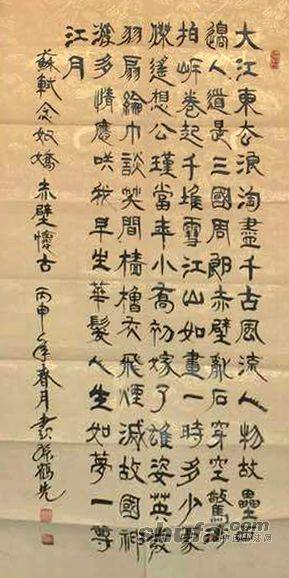 大江東去浪淘盡千古風流人物故壘
邊人道是三國周郎赤壁亂石穿空驚濤
拍岸卷起千堆雪江山如畫一時多少豪
傑遙想公瑾當年小喬初嫁了雄姿英發
羽扇綸巾談笑間檣櫓灰飛煙滅故國神
遊多情應咲我早生華髮人生如夢一尊
江月
蘇軾念奴嬌赤壁懷古丙申年春月書鶴先